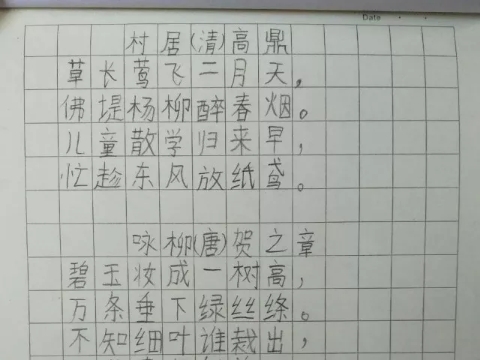 Date
村居(清)高鼎
草长莺飞二月天，
佛堤杨柳醉春烟。
儿童散学归来早，
忙趁东风放纸鸢。
咏柳(唐)贺之章
碧玉妆成一树高，
万条垂下绿丝绦。
不知细叶谁裁出，